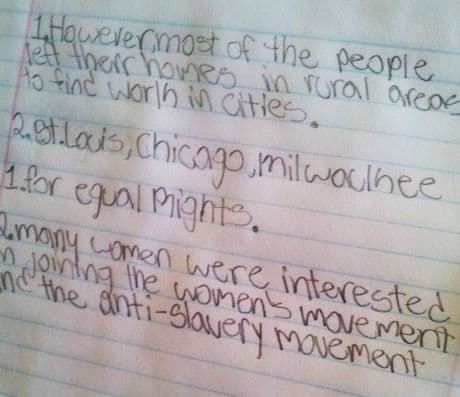 1. However, most of the people
left their homes in rural areas
to find worlh in cities.
2. st. Louis, Chicago, milwaulhee
1. for equal Rights.
2. many women were interested
in joining the women's movement
and the anti-slavery movement